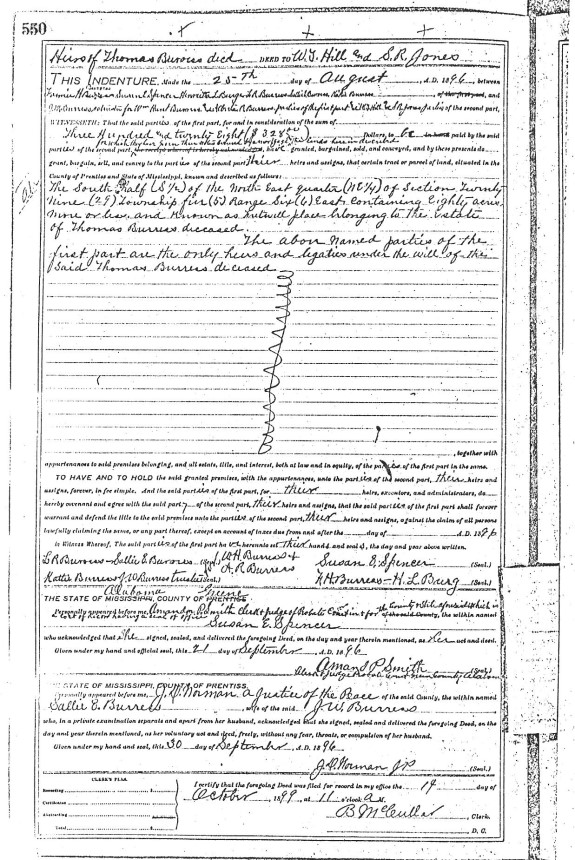 550
Heirs of Thomas Burress died DEED TO W.T. Hill and S.R. Jones
THIS INDENTURE, Made the 25th day of August A.D. 1896 between
Susan E Spencer of the first part, and
parties of the second part,
WITNESSETH: That the said parties of the first part, for and in consideration of the sum of
Three Hundred and twenty Eight ($328 Dollars, to be in hand paid by the said
parties of the second part, have granted, bargained, sold, and conveyed, and by these presents do
grant, bargain, sell, and convey to the parties of the second part, their heirs and assigns, that certain tract or parcel of land, situated in the
County of Prentiss and State of Mississippi, known and described as follows:
The South Half (S ½) of the North East quarter (NE ¼) of Section Twenty
Nine (29) Township five (5) Range Six (6) East. Containing Eighty acres
more or less, and Known as place belonging to the Estate
of Thomas Burress deceased.
The above named parties of the
first part are the only heirs and legaties under the will of the
Said Thomas Burress deceased
, together with
appurtenances to said premises belonging, and all estate, title, and interest, both at law and in equity, of the parties of the first part in the same.
TO HAVE AND TO HOLD the said granted premises, with the appurtenances, unto the parties of the second part, their heirs and
assigns, forever, in fee simple. And the said parties of the first part, for their heirs, executors, and administrators, do
hereby covenant and agree with the said part y of the second part, their heirs and assigns, that the said parties of the first part shall forever
warrant and defend the title to the said premises unto the parties of the second part, their heirs and assigns, against the claim of all persons
lawfully claiming the same, or any part thereof, except on account of taxes due from and after the day of A.D. 1896
In Witness Whereof, The said parties of the first part have hereunto set their hands and seals, the day and year above written.
L R Burress - Sallie E Burress (Seal.) W H Burress + Susan E. Spencer (Seal.)
A. R Burress
Katie Burress J W Burress trustee (Seal.) F H Burress - H. L Burg (Seal.)
Alabama Greene
THE STATE OF MISSISSIPPI, COUNTY OF PRENTISS.
Personally appeared before me, Amand P Smith Clerk & Judge of Probate Court in & for the County & State aforesaid which is
a court of record having a seal of office of the said County, the within named
Susan E. Spencer
who acknowledged that she signed, sealed, and delivered the foregoing Deed, on the day and year therein mentioned, as her act and deed.
Given under my hand and official seal, this 21 day of September A.D. 1896
Amand P Smith (Seal.)
Clerk & Judge Probate Court Greene County Alabama
THE STATE OF MISSISSIPPI, COUNTY OF PRENTISS.
Personally appeared before me, J. A. Norman a Justice of the Peace of the said County, the within named
Sallie E. Burress wife of the said J W Burress
who, in a private examination separate and apart from her husband, acknowledged that she signed, sealed and delivered the foregoing Deed, on the
day and year therein mentioned, as her voluntary act and deed, freely, without any fear, threats, or compulsion of her husband.
Given under my hand and seal, this 30 day of September A.D. 1896.
J. A. Norman J P (Seal.)
CLERK'S FEES.
Recording $
Certificate
Abstracting
Total $
I certify that the foregoing Deed was filed for record in my office the 19 day of
October, 1899, at 11 o'clock A.M.
B McCullar, Clerk.
D. C.